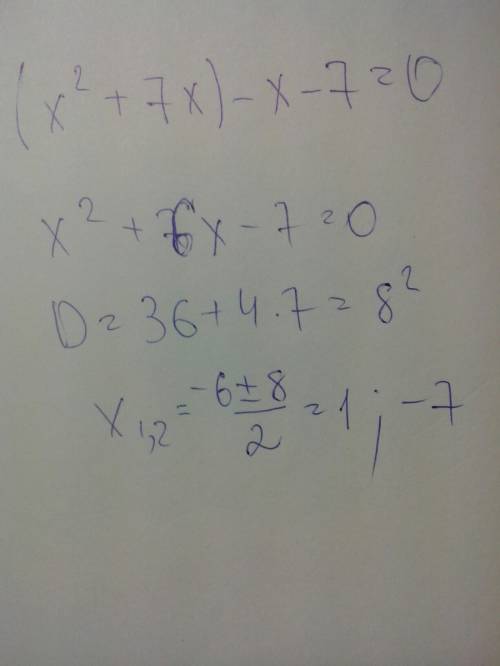 (x² + 7x) - x - 7 = 0
x² + 6x - 7 = 0
D = 36 + 4·7 = 8²
x₁,₂ = (-6 ± 8)/2 = 1 ; -7